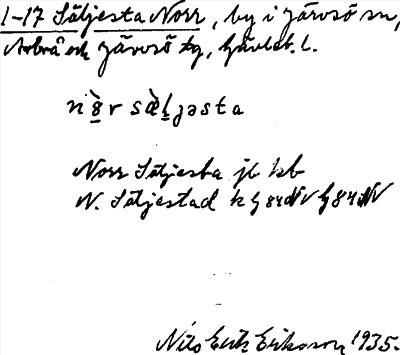 1-17 Säljesta Norr, by i Järvsö sn,
Arbrå och Järvsö tg, Gävleb. l.
nò̱r sæ̀ḻjəsta
Norr Säljesta jb kb
N. Säljestad k G 84 NV G 84 NV
Nils Erik Erikson 1935.